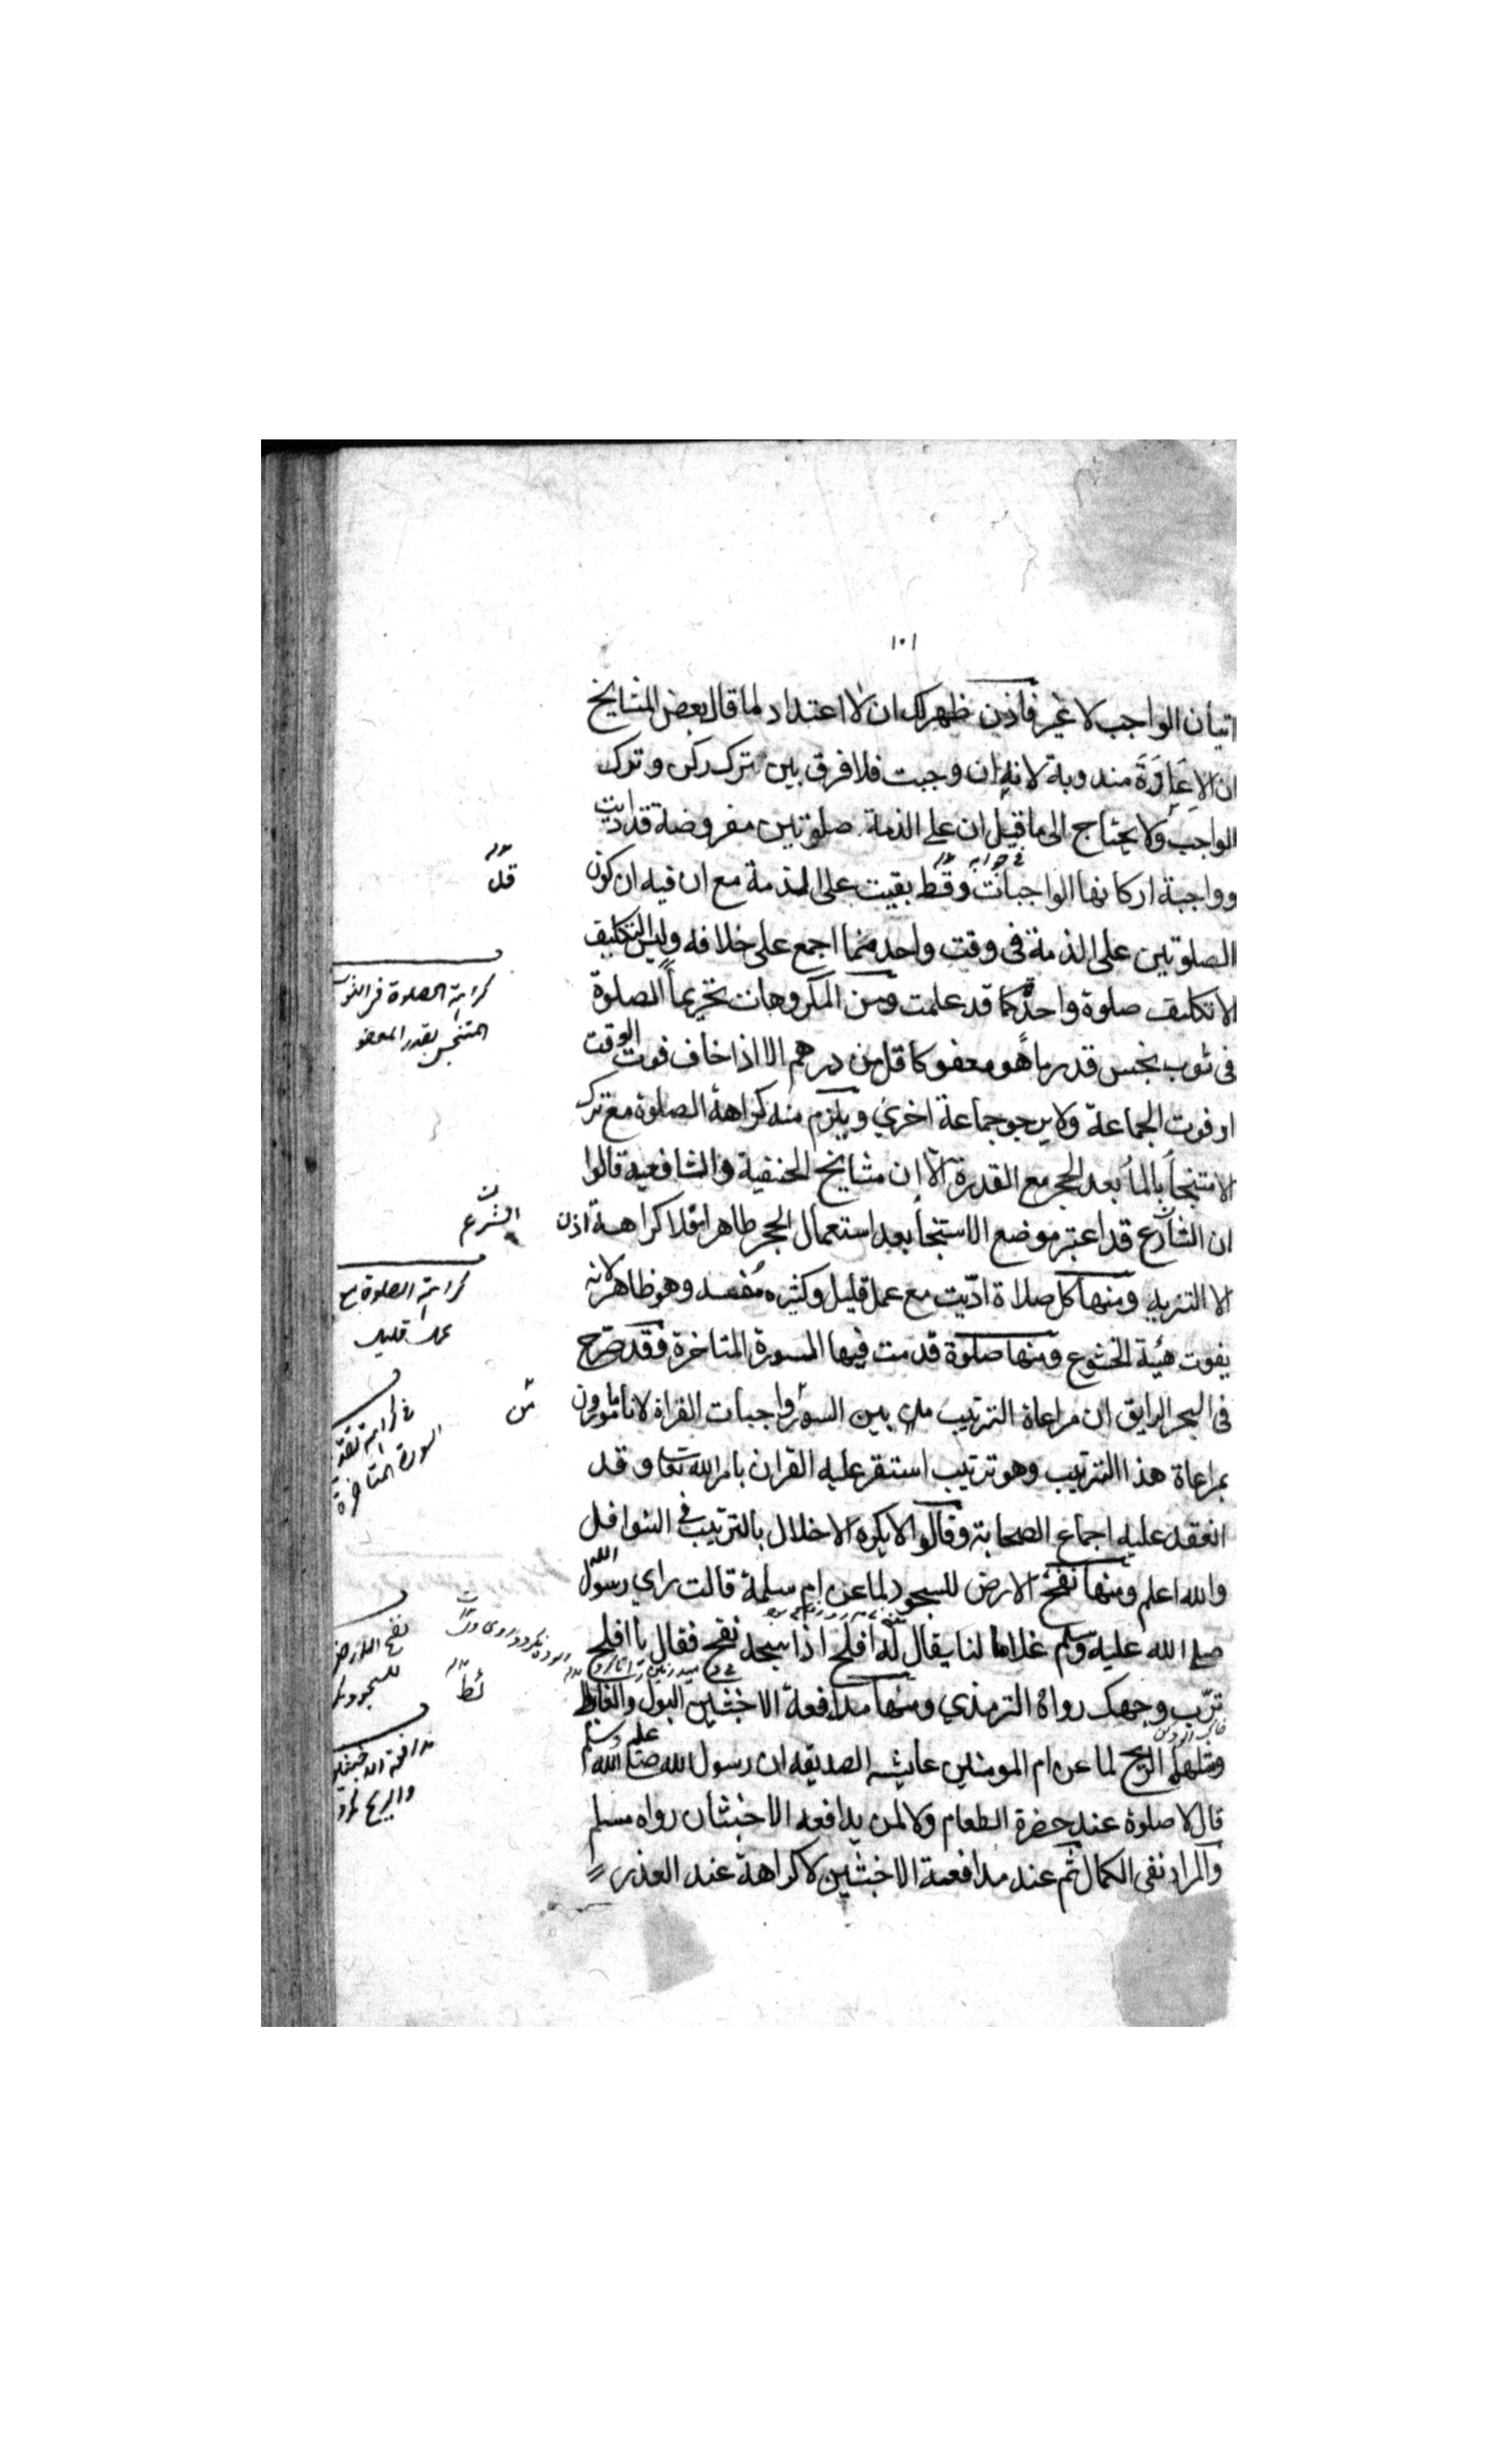 ١٠١
اتيان الواجب لا غير فاذن ظهر لك ان لا اعتداد لما قال بعض المشايخ
ان الاعادة مندوبة لانه ان وجبت فلا فرق بين ترك ركن وترك
الواجب ولا يحتاج الى ما قيل ان على الذمة صلوتين مفروضة قد اديت
وواجبة اركانها الواجبات وقط بقيت على الذمة مع ان فيه ان كون
الصلوتين على الذمة فى وقت واحد مما اجمع على خلافه وليس التكليف
الا تكليف صلوة واحدة كما قد علمت ومن المكروهات تحريماً الصلوة
فى ثوب نجس قدر ما هو معفو كاقل من درهم الا اذا خاف فوت الوقت
او فوت الجماعة ولا يرجو جماعة اخرى ويلزم منه كراهة الصلوة مع ترك
الاستنجاء بالماء بعد الحجر مع القدرة الا ان مشايخ الحنفية والشافعية قالوا
ان الشارع قد اعتبر موضع الاستنجا بعد استعمال الحجر طاهرا فلا كراهة اذن
الا التنزيه ومنها كل صلاة ادّيت مع عمل قليل وكثيره مُفسد وهو ظاهر لانه
يفوت هيئة الخشوع ومنها صلوة قدمت فيها السورة المتاخرة فقد صرّح
فى البحر الرايق ان مراعاة الترتيب بين السور واجبات القراة لانا مامورون
بمراعاة هذا الترتيب وهو ترتيب استقر عليه القران بامر الله تعا وقد
انعقد عليه اجماع الصحابة وقالوا لا يكره الاخلال بالترتيب فى النوافل
والله اعلم ومنها نفخ الارض للسجود لما عن ام سلمة قالت راي رسول الله
صلى الله عليه وسلم غلاما لنا يقال له افلح اذا سجد نفخ فقال يا افلح
ترّب وجهك رواه الترمذي ومنها مدافعة الاخبثين البول والغايط
ومثلهما الريح لما عن ام المومنين عايشه الصديقه ان رسول الله صلى الله عليه وسلم
قال لا صلوة عند حضرة الطعام ولا لمن يدافعه الاخبثان رواه مسلم
والمراد نفى الكمال ثم عند مدافعة الاخبثين لا كراهة عند العذر
قل
كراهة الصلوة فى الثوب
المتنجس بقدر المعفو
الشرع
كراهة الصلوة مع
عمل قليل
من
فى كراهة تقدم
السورة المتاخرة
نفخ الارض
للسجود
ئط
مدافعة الاخبثين
والريح